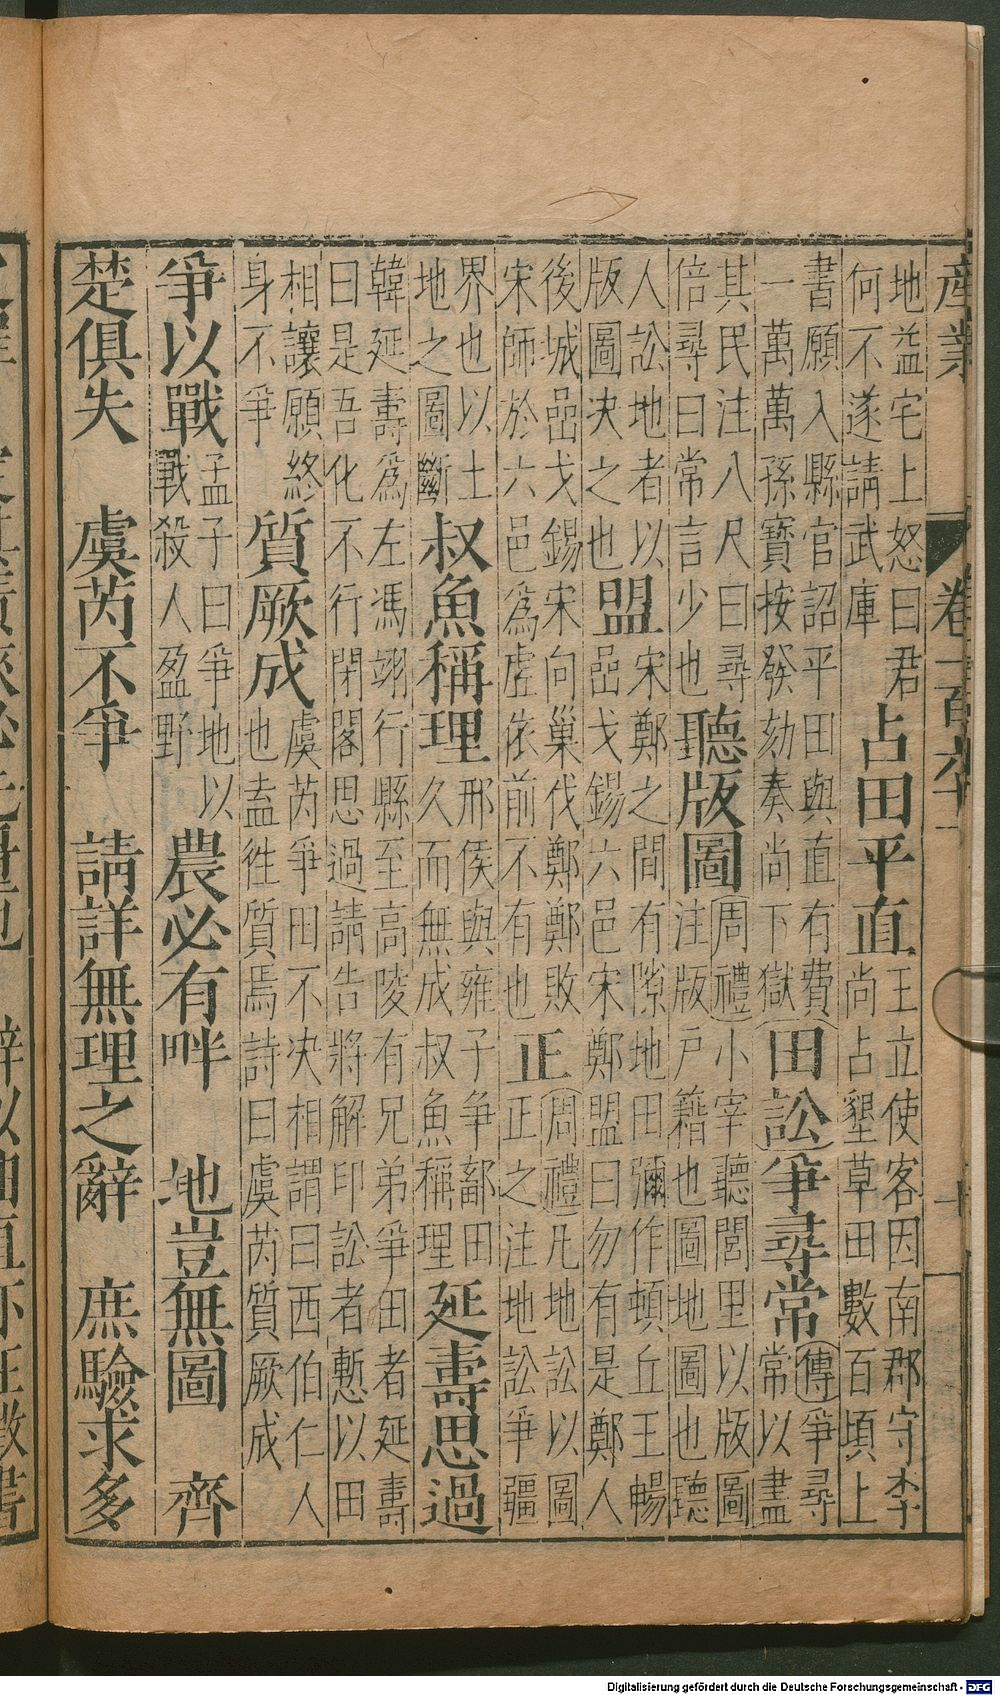 産業 卷一百六十 十
地益宅上怒曰君何不遂請武庫占田平直王立使客因南郡守李尚占墾草田數百頃上
書願入縣官詔平田與直有費一萬萬孫寶按發劾奏尚下獄田訟爭尋常傳爭尋常以盡
其民注八尺曰尋倍尋曰常言少也聽版圖周禮小宰聽閭里以版圖注版戸籍也圖地圖也聽
人訟地者以版圖决之也盟宋鄭之間有隙地田彌作頓丘王暢嵒戈錫六邑宋鄭盟曰勿有是鄭人
後城嵒戈錫宋向巢伐鄭鄭敗宋師於六邑爲虗依前不有也正周禮凡地訟以圖正之注地訟爭疆
界也以土地之圖斷叔魚稱理邢侯與雍子爭鄐田久而無成叔魚稱理延壽思過
韓延壽爲左馮翊行縣至高陵有兄弟爭田者延壽曰是吾化不行閉閤思過請告將解印訟者慙以田
相讓願終身不爭質厥成虞芮爭田不决相謂曰西伯仁人也盍徃質焉詩曰虞芮質厥成
爭以戰孟子曰爭地以戰殺人盈野 農必有畔 地豈無圖 齊
楚俱失 虞芮不爭 請詳無理之辭 庶驗求多
Digitalisierung gefördert durch die Deutsche Forschungsgemeinschaft - DFG